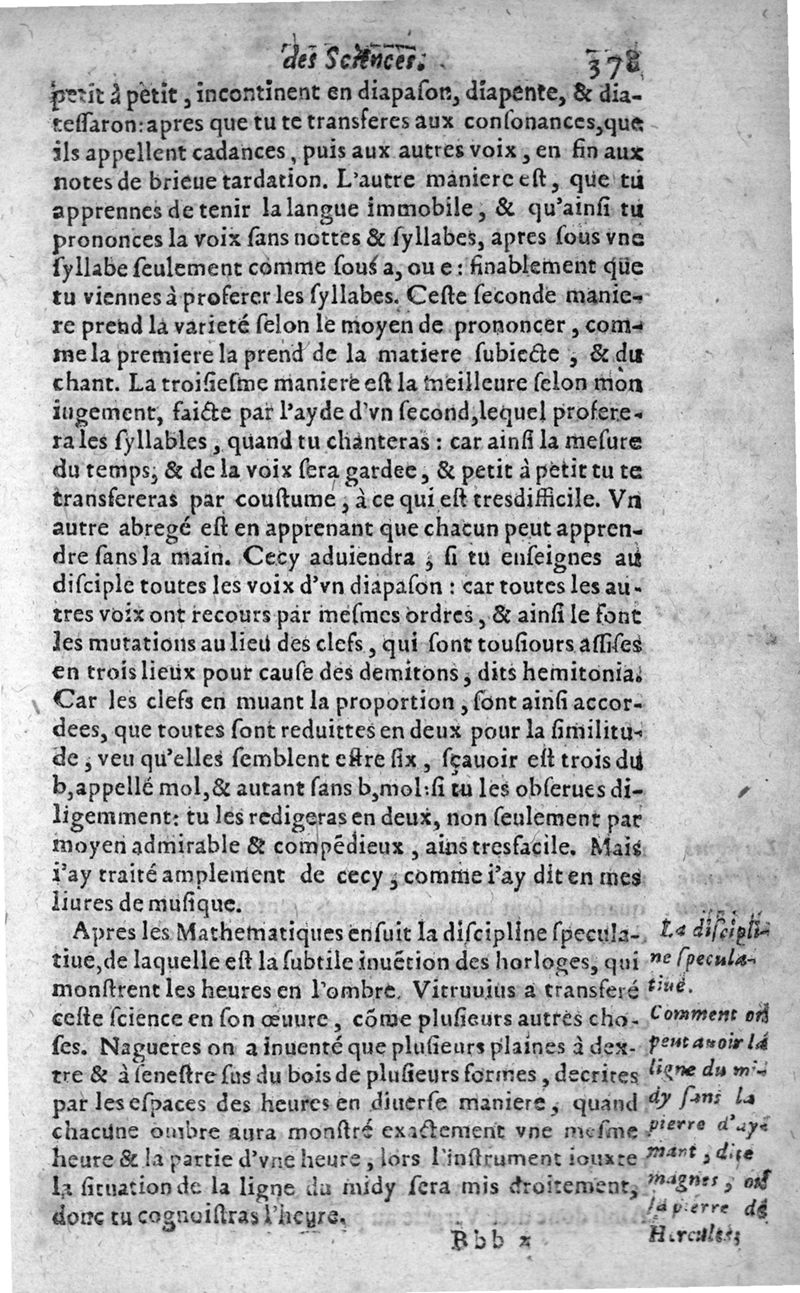 des Sciences. 378
petit à petit, incontinent en diapaſon, diapente, & dia-
teſſaron: apres que tu te transferes aux conſonances, que
ils appellent cadances, puis aux autres voix, en fin aux
notes de brieue tardation. L'autre maniere eſt, que tu
apprennes de tenir la langue immobile, & qu'ainſi tu
prononces la voix ſans nottes & ſyllabes, apres ſous vne
ſyllabe ſeulement comme ſous a, ou e: finablement que
tu viennes à proferer les ſyllabes. Ceſte ſeconde manie-
re prend la varieté ſelon le moyen de prononcer, com-
me la premiere la prend de la matiere ſubiecte, & du
chant. La troiſieſme maniere eſt la meilleure ſelon mon
iugement, faicte par l'ayde d'vn ſecond, lequel profere-
ra les ſyllables, quand tu chanteras: car ainſi la meſure
du temps, & de la voix ſera gardee, & petit à petit tu te
transfereras par couſtume, à ce qui eſt tresdifficile. Vn
autre abregé eſt en apprenant que chacun peut appren-
dre ſans la main. Cecy aduiendra, ſi tu enſeignes au
diſciple toutes les voix d'vn diapaſon: car toutes les au-
tres voix ont recours par meſmes ordres, & ainſi le font
les mutations au lieu des clefs, qui ſont touſiours aſſiſes
en trois lieux pour cauſe des demitons, dits hemitonia.
Car les clefs en muant la proportion, ſont ainſi accor-
dees, que toutes ſont reduittes en deux pour la ſimilitu-
de, veu qu'elles ſemblent eſtre ſix, ſçauoir eſt trois du
b, appellé mol, & autant ſans b, mol: ſi tu les obſerues di-
ligemment: tu les redigeras en deux, non ſeulement par
moyen admirable & compẽdieux, ains tresfacile. Mais
i'ay traité amplement de cecy, comme i'ay dit en mes
liures de muſique.
Apres les Mathematiques enſuit la diſcipline ſpecula-
tiue, de laquelle eſt la ſubtile inuẽtion des horloges, qui
monſtrent les heures en l'ombre. Vitruuius a transferé
ceſte ſcience en ſon œuure, cõme pluſieurs autres cho-
ſes. Nagueres on a inuenté que pluſieurs plaines à dex-
tre & à ſeneſtre ſus du bois de pluſieurs formes, decrites
par les eſpaces des heures en diuerſe maniere, quand
chacune ombre aura monſtré exactement vne meſme
heure & la partie d'vne heure, lors l'inſtrument iouxte
la ſituation de la ligne du midy ſera mis droitement,
donc tu cognoiſtras l'heure.
La diſcipli-
ne ſpecula-
tiue.
Comment on
peut auoir la
ligne du mi-
dy ſans la
pierre d'ay-
mant, dite
magnes, ou
la pierre de
Hercules,
Bbb x